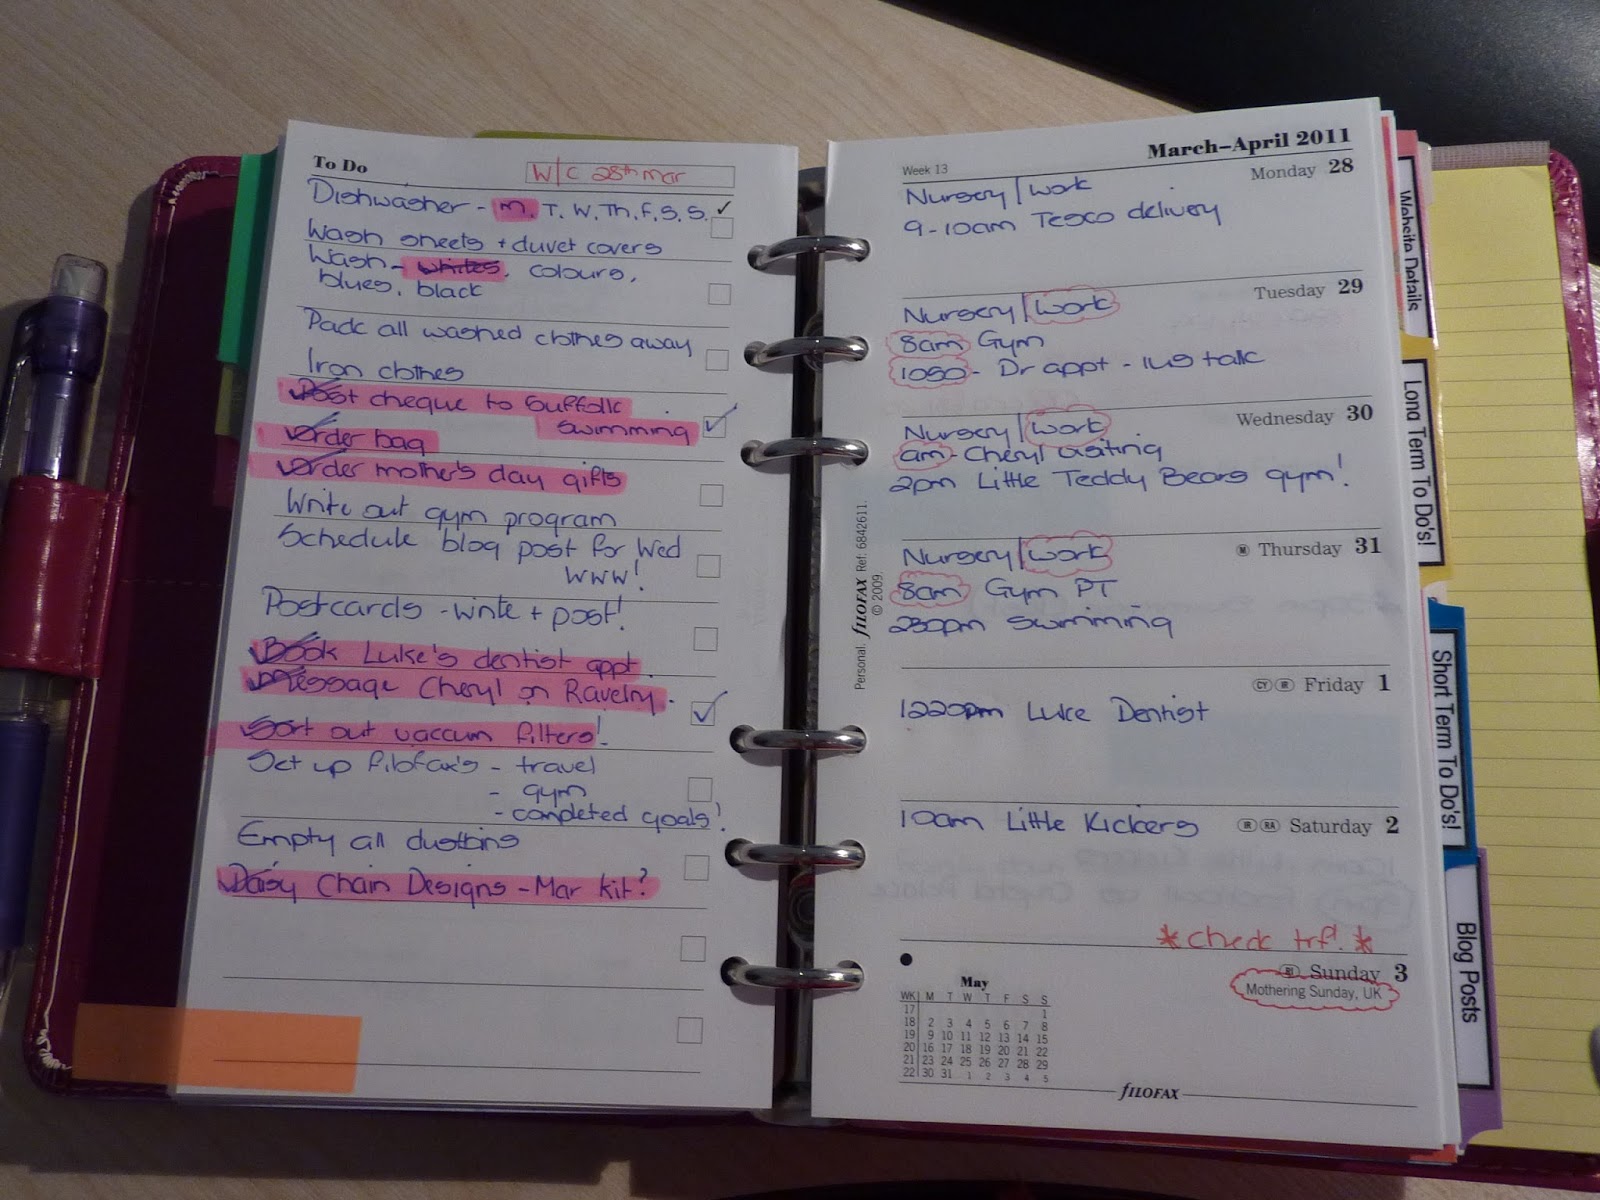 To Do
W/C 28th Mar
Dishwasher - M. T. W. Th. F. S. S.
Wash sheets + duvet covers
Wash - whites, colours,
blues, black
Pack all washed clothes away
Iron clothes
Post cheque to Suffolk
swimming
Order bag
Order mother's day gifts
Write out gym program
Schedule blog post for Wed
WWW!
Postcards - write + post!
Book Luke's dentist appt
Message Cheryl on Ravelry.
Sort out vaccum filters!
Set up filofax's - travel
- gym
- completed goals!
Empty all dustbins
Daisy Chain Designs - Mar kit?
March–April 2011
Week 13
Monday 28
Nursery/work
9-10am Tesco delivery
Tuesday 29
Nursery/work
8am Gym
1050 - Dr appt - ius talk
Wednesday 30
Nursery/work
am - Cheryl visiting
2pm Little Teddy Bears gym!
Thursday 31
Nursery/work
8am Gym PT
230pm swimming
Friday 1
1220pm Luke Dentist
Saturday 2
10am Little Kickers
*check trf!*
Sunday 3
Mothering Sunday, UK
May
WK M T W T F S S
17 1
18 2 3 4 5 6 7 8
19 9 10 11 12 13 14 15
20 16 17 18 19 20 21 22
21 23 24 25 26 27 28 29
22 30 31 1 2 3 4 5
fILOFAX
Personal. fILOFAX Ref: 6842611.
© 2009.
Website Details
Long Term To Do's!
Short Term To Do's!
Blog Posts